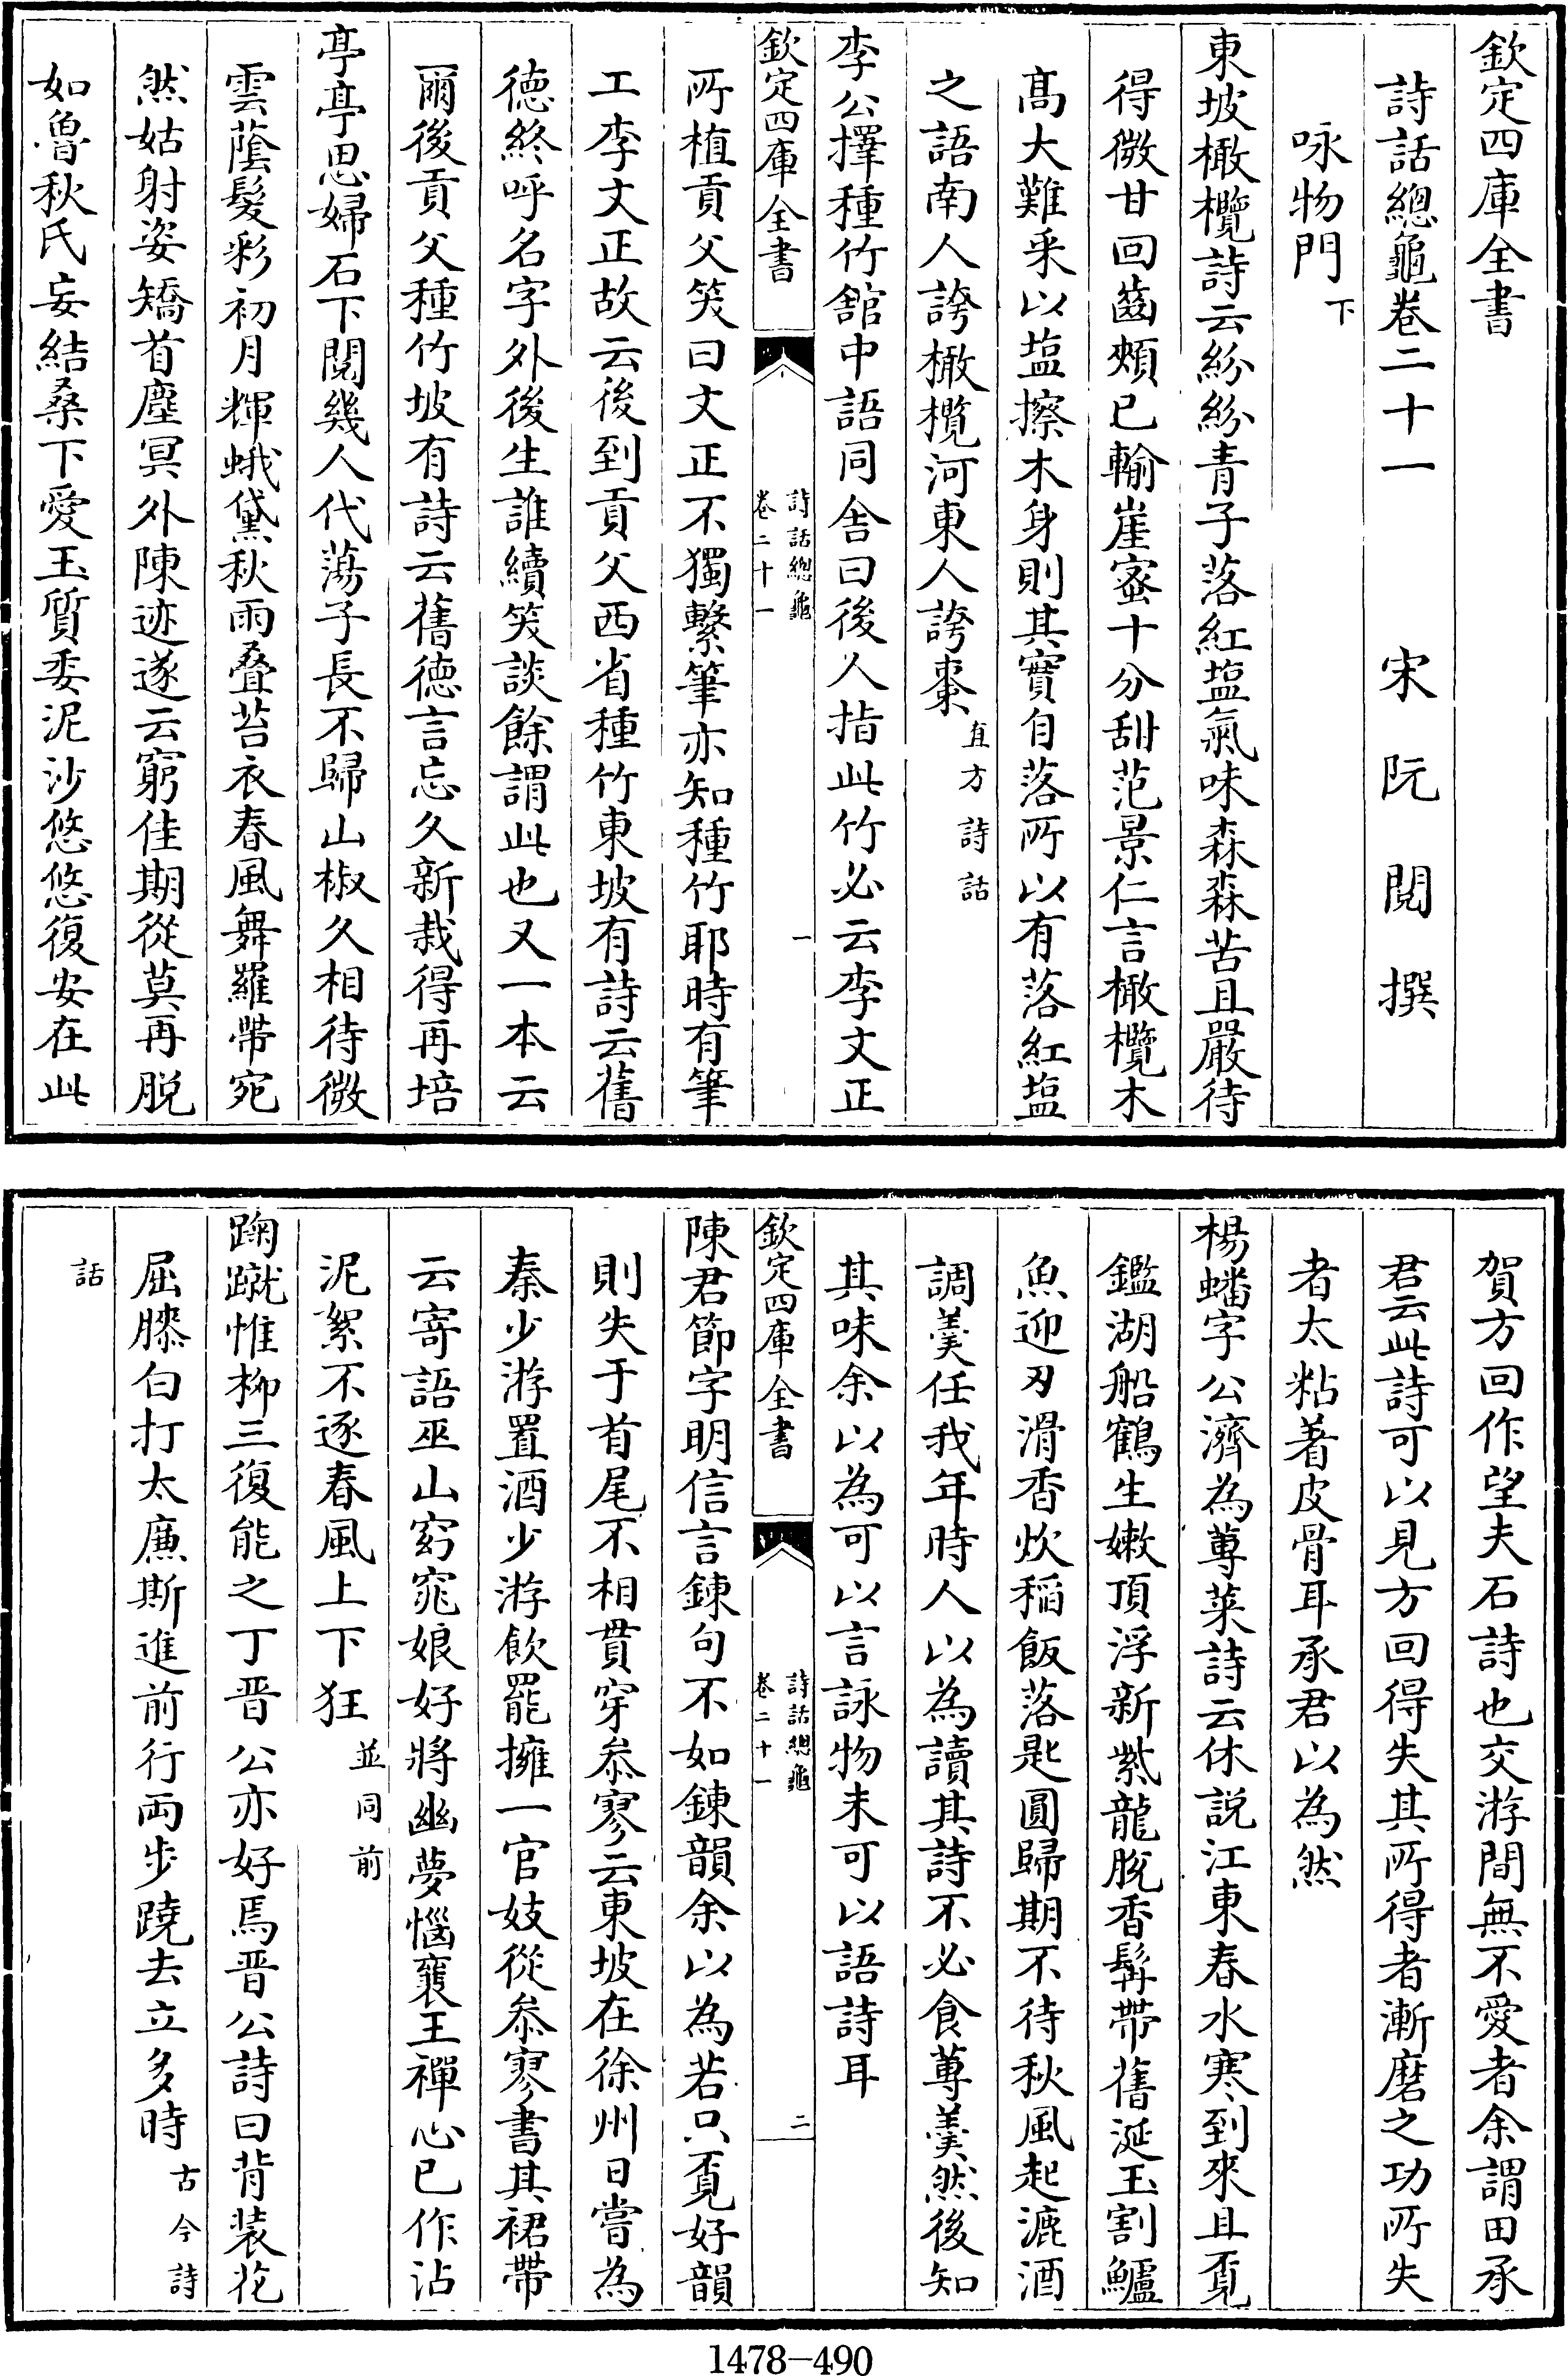 欽定四庫全書
詩話總龜卷二十一　宋　阮　閱　撰
咏物門下
東坡橄欖詩云紛紛青子落紅塩氣味森森苦且嚴待
得微甘回齒頰已輸崖蜜十分甜范景仁言橄欖木
髙大難采以塩擦木身則其實自落所以有落紅塩
之語南人誇橄欖河東人誇棗直方詩話
李公擇種竹舘中語同舍曰後人指此竹必云李文正
欽定四庫全書
詩話總龜
卷二十一
一
所植貢父笑曰文正不獨繫筆亦知種竹耶時有筆
工李文正故云後到貢父西省種竹東坡有詩云舊
德終呼名字外後生誰續笑談餘謂此也又一本云
爾後貢父種竹坡有詩云舊徳言忘久新栽得再培
亭亭思婦石下閱幾人代蕩子長不歸山椒久相待微
雲蔭髮彩初月輝蛾黛秋雨叠苔衣春風舞羅帶宛
然姑射姿矯首塵冥外陳迹遂云窮佳期從莫再脱
如魯秋氏妄結桑下愛玉質委泥沙悠悠復安在此
賀方回作望夫石詩也交游間無不愛者余謂田承
君云此詩可以見方回得失其所得者漸磨之功所失
者太粘着皮骨耳承君以為然
楊蟠字公濟為蓴菜詩云休説江東春水寒到來且覔
鑑湖船鶴生嫩頂浮新紫龍脱香髯帶舊涎玉割鱸
魚迎刃滑香炊稻飯落匙圓歸期不待秋風起漉酒
調羮任我年時人以為讀其詩不必食蓴羮然後知
其味余以為可以言詠物未可以語詩耳
欽定四庫全書
詩話總龜
卷二十一
二
陳君節字明信言鍊句不如鍊韻余以為若只覔好韻
則失于首尾不相貫穿叅寥云東坡在徐州日嘗為
秦少游置酒少游飲罷擁一官妓從叅寥書其裙帶
云寄語巫山窈窕娘好將幽夢惱襄王禪心已作沾
泥絮不逐春風上下狂並同前
踘蹴惟柳三復能之丁晋公亦好焉晋公詩曰背装花
屈膝白打太廉斯進前行両步蹺去立多時古今詩
話
1478-490